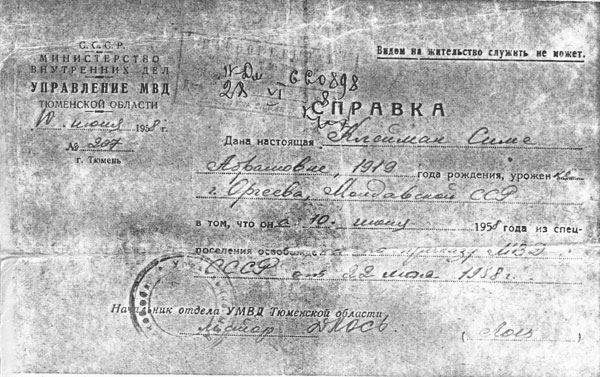 С. С. С. Р.
МИНИСТЕРСТВО
ВНУТРЕННИХ ДЕЛ
УПРАВЛЕНИЕ МВД
ТЮМЕНСКОЙ ОБЛАСТИ
10 июня 1958 г.
№ 207
г. Тюмень
Видом на жительство служить не может.
СПРАВКА
Дана настоящая Клейман Симе
Абрамовне, 1919 года рождения, урожен
г. Оргеева, Молдавской ССР
в том, что он а 10 июня 1958 года из спец-
поселения освобожд по приказу МВД
СССР от 22 мая 1958 г.
Начальник отдела УМВД Тюменской области